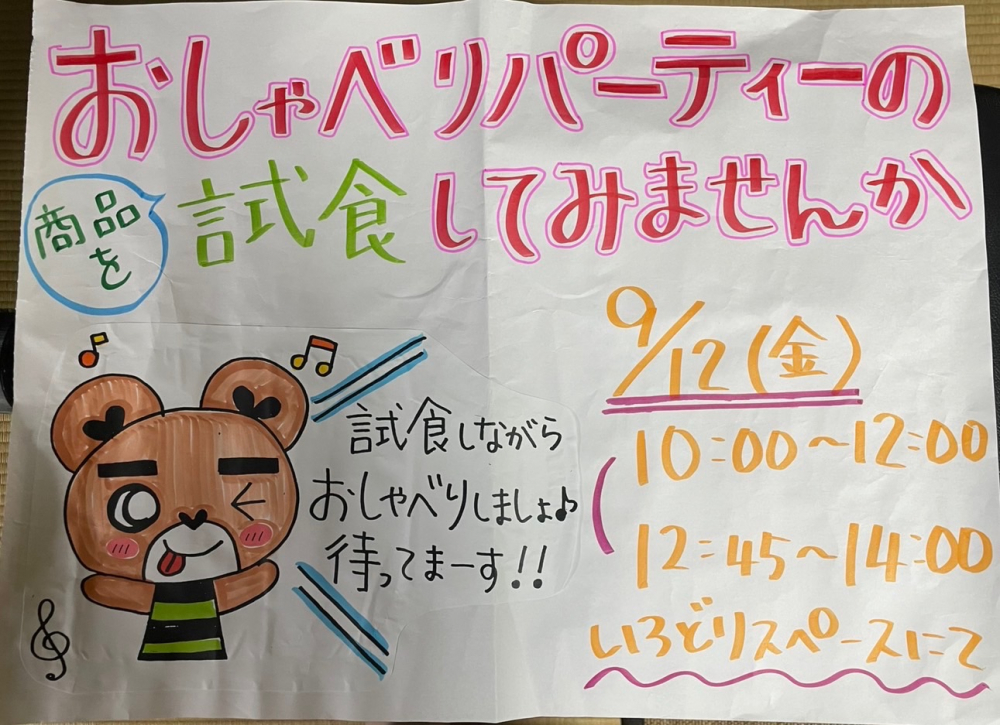 おしゃべりパーティーの
商品を
試食してみませんか
9/12(金)
10:00〜12:00
12:45〜14:00
いろどりスペースにて
試食しながら
おしゃべりしましょ♪
待ってまーす!!